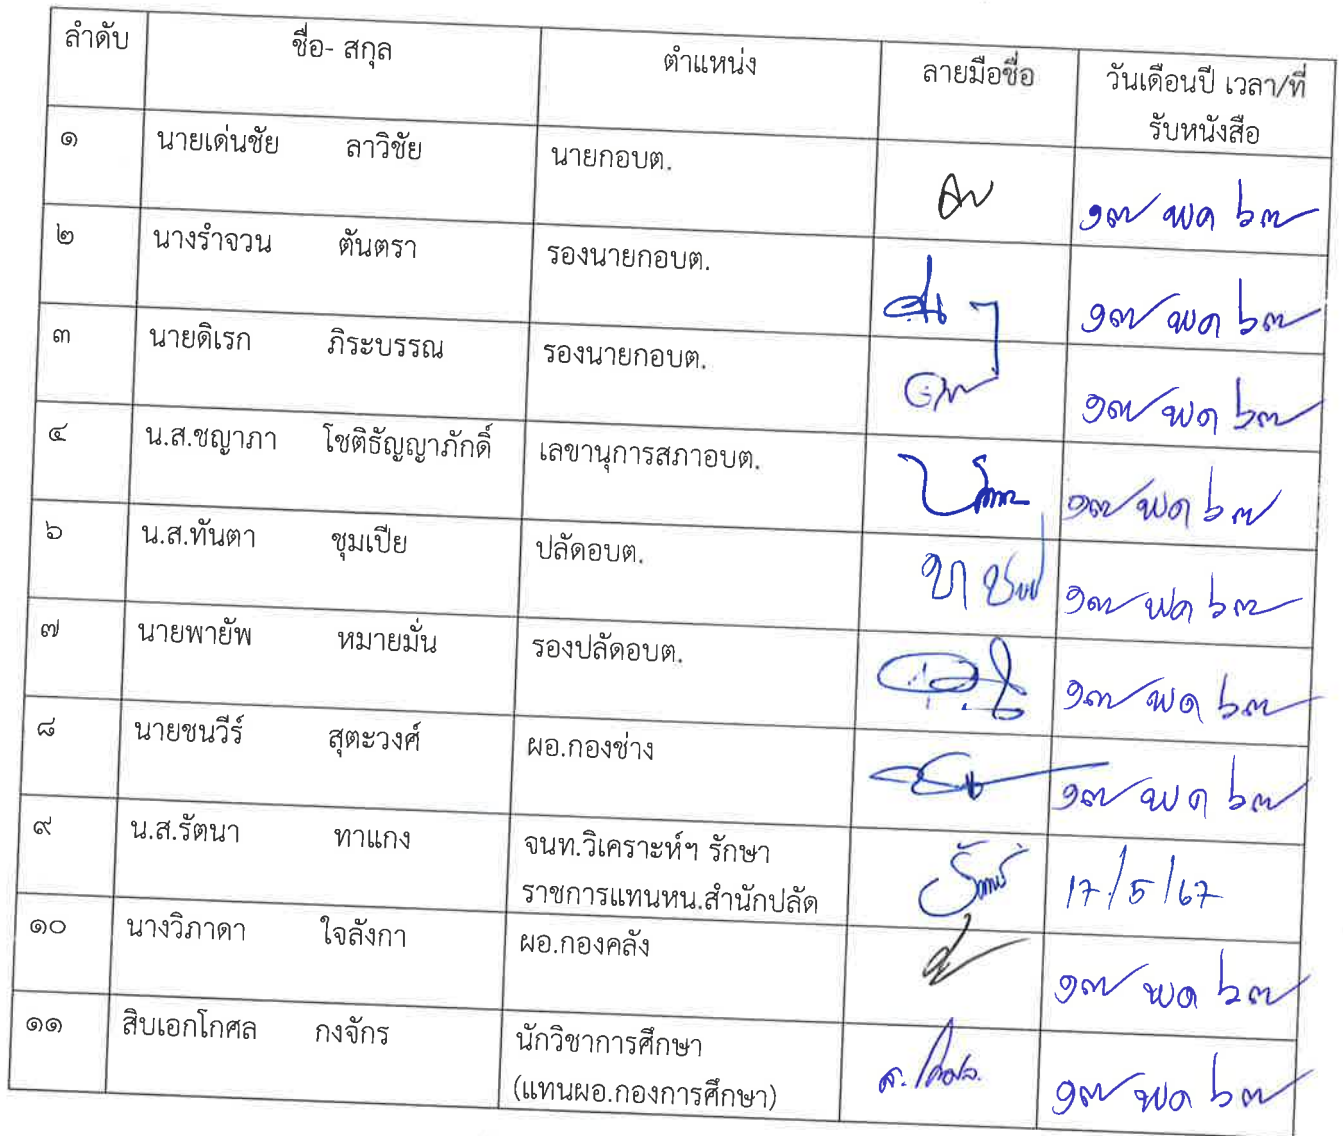 ลำดับ ชื่อ- สกุล ตำแหน่ง ลายมือชื่อ วันเดือนปี เวลา/ที่
รับหนังสือ
๑ นายเด่นชัย ลาวิชัย นายกอบต. ๑๗ พค ๖๗
๒ นางรำจวน ตันตรา รองนายกอบต. ๑๗ พค ๖๗
๓ นายดิเรก ภิระบรรณ รองนายกอบต. ๑๗ พค ๖๗
๔ น.ส.ชญาภา โชติธัญญาภักดิ์ เลขานุการสภาอบต. ๑๗ พค ๖๗
๖ น.ส.ทันตา ชุมเปีย ปลัดอบต. ๑๗ พค ๖๗
๗ นายพายัพ หมายมั่น รองปลัดอบต. ๑๗ พค ๖๗
๘ นายชนวีร์ สุตะวงศ์ ผอ.กองช่าง ๑๗ พค ๖๗
๙ น.ส.รัตนา ทาแกง จนท.วิเคราะห์ฯ รักษา 17/5/67
ราชการแทนหน.สำนักปลัด
๑๐ นางวิภาดา ใจลังกา ผอ.กองคลัง ๑๗ พค ๖๗
๑๑ สิบเอกโกศล กงจักร นักวิชาการศึกษา ๑๗ พค ๖๗
(แทนผอ.กองการศึกษา)